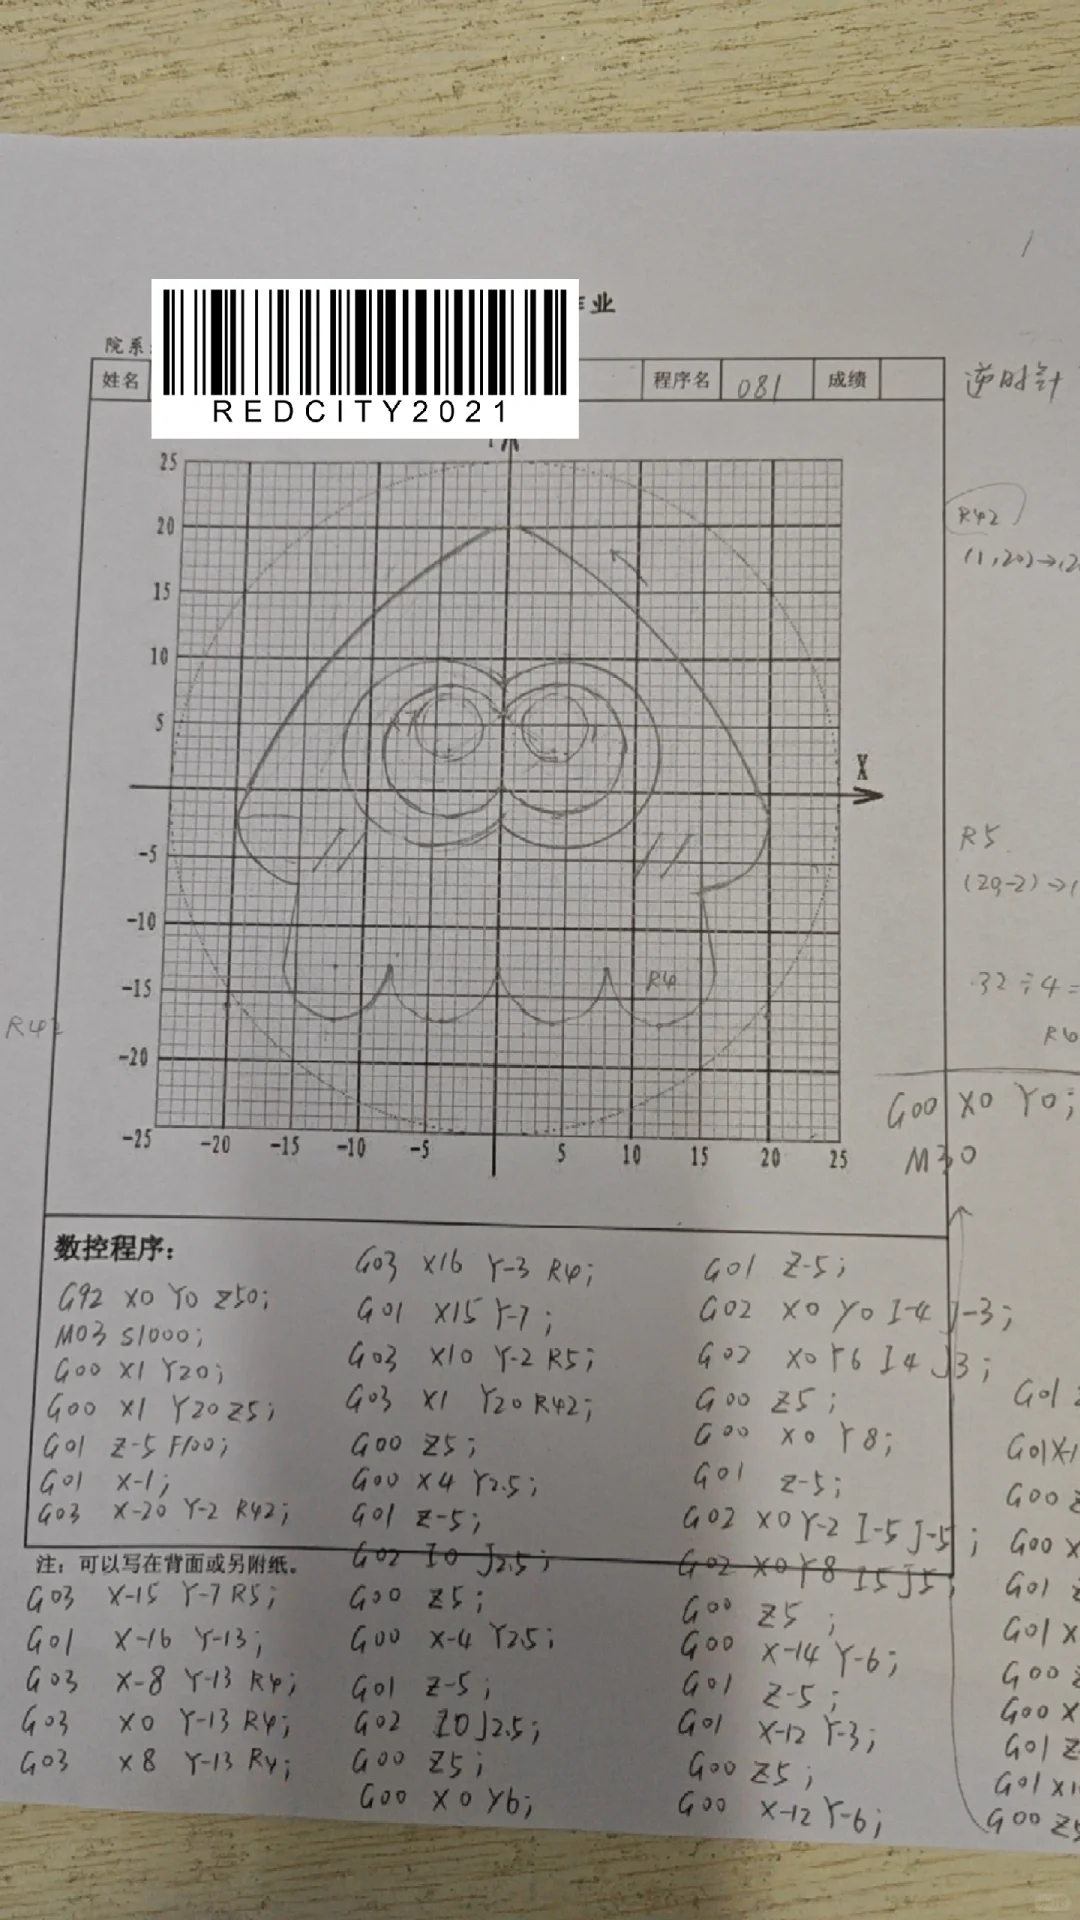 作业
院系:
REDCITY2021
姓名
程序名 081 成绩
逆时针
R42
(1,20)→(2
25
20
15
10
5
X
-5
R5
(20,-2)→(
-10
-15
R4
32÷4=
R42
-20
-25
-20 -15 -10 -5 5 10 15 20 25
G00 X0 Y0;
M30
数控程序：
G92 X0 Y0 Z50;
M03 S1000;
G00 X1 Y20;
G00 X1 Y20 Z5;
G01 Z-5 F100;
G01 X-1;
G03 X-20 Y-2 R42;
注：可以写在背面或另附纸。
G03 X-15 Y-7 R5;
G01 X-16 Y-13;
G03 X-8 Y-13 R4;
G03 X0 Y-13 R4;
G03 X8 Y-13 R4;
G03 X16 Y-3 R4;
G01 X15 Y-7;
G03 X10 Y-2 R5;
G03 X1 Y20 R42;
G00 Z5;
G00 X4 Y2.5;
G01 Z-5;
G02 I0 J2.5;
G00 Z5;
G00 X-4 Y2.5;
G01 Z-5;
G02 I0 J2.5;
G00 Z5;
G00 X0 Y6;
G01 Z-5;
G02 X0 Y0 I-4 J-3;
G02 X0 Y6 I4 J3;
G00 Z5;
G00 X0 Y8;
G01 Z-5;
G02 X0 Y-2 I-5 J-5;
G02 X0 Y8 I5 J5;
G00 Z5;
G00 X-14 Y-6;
G01 Z-5;
G01 X-12 Y-3;
G00 Z5;
G00 X-12 Y-6;
G01
G01 X-1
G00
G00 X
G01
G01 X
G00
G00 X
G01 Z
G01 X1
G00 Z5